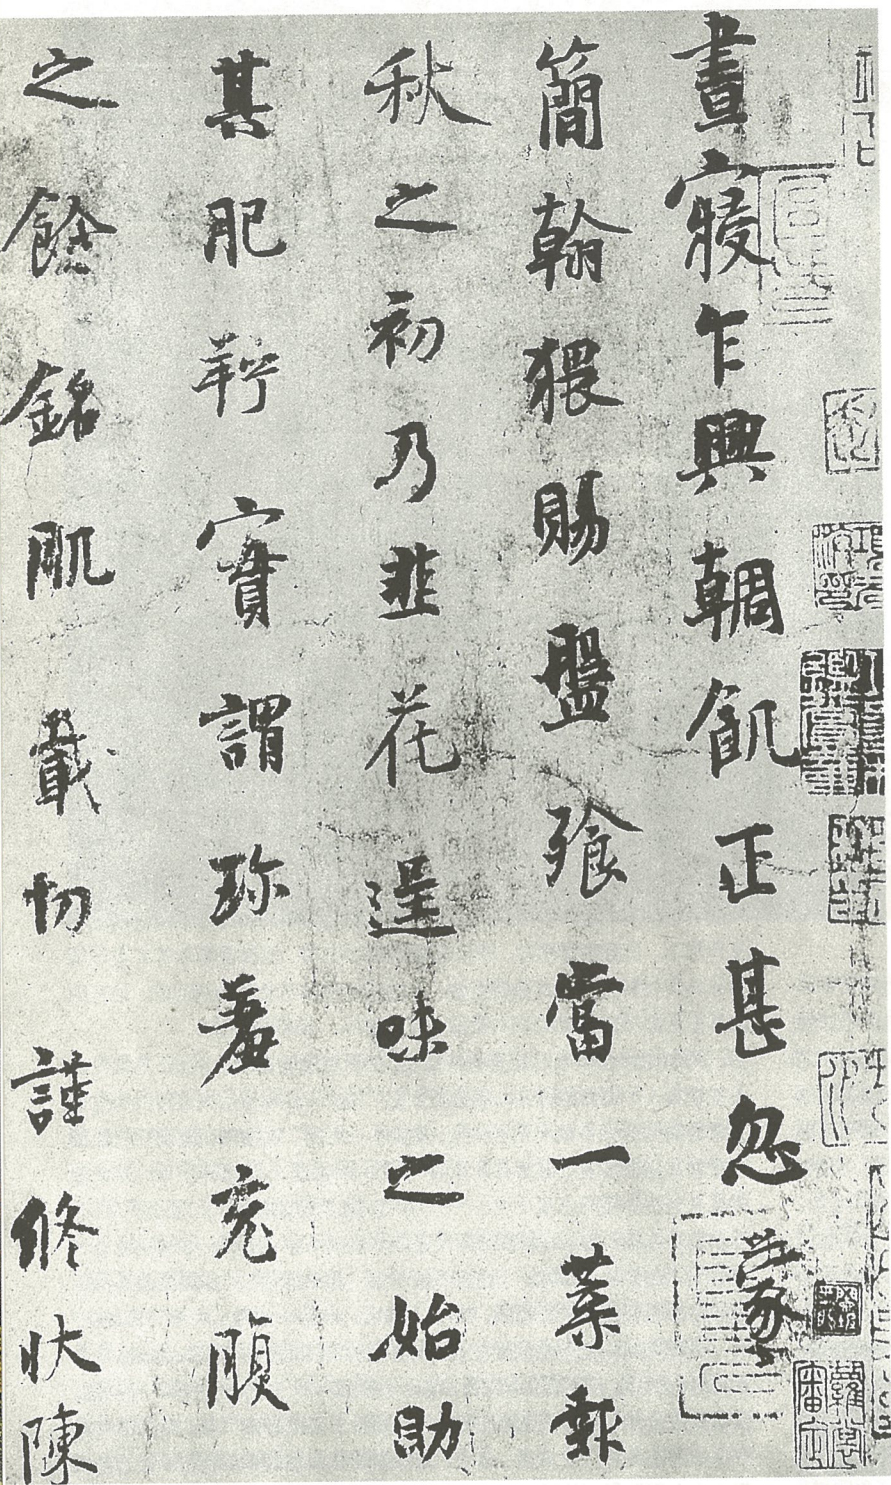 晝寢乍興輖飢正甚忽蒙
簡翰猥賜盤飱當一葉報
秋之初乃韭花逞味之始助
其肥羜實謂珍羞充腹
之餘銘肌載切謹修狀陳